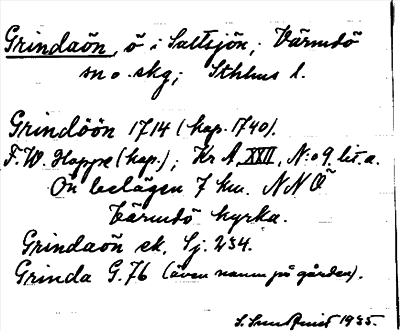 Grindaön, ö i Saltsjön, Värmdö
sn o. skg; Sthlms l.
Grindöön 1714 (kop. 1740).
F. W. Hoppe (kop.); Kr A, XXII, N:o 9 lit. a.
Ön belägen 7 km. NNÖ
Värmdö kyrka.
Grindaön ek. Sj. 234.
Grinda G.76 (även namn på gården).
1935